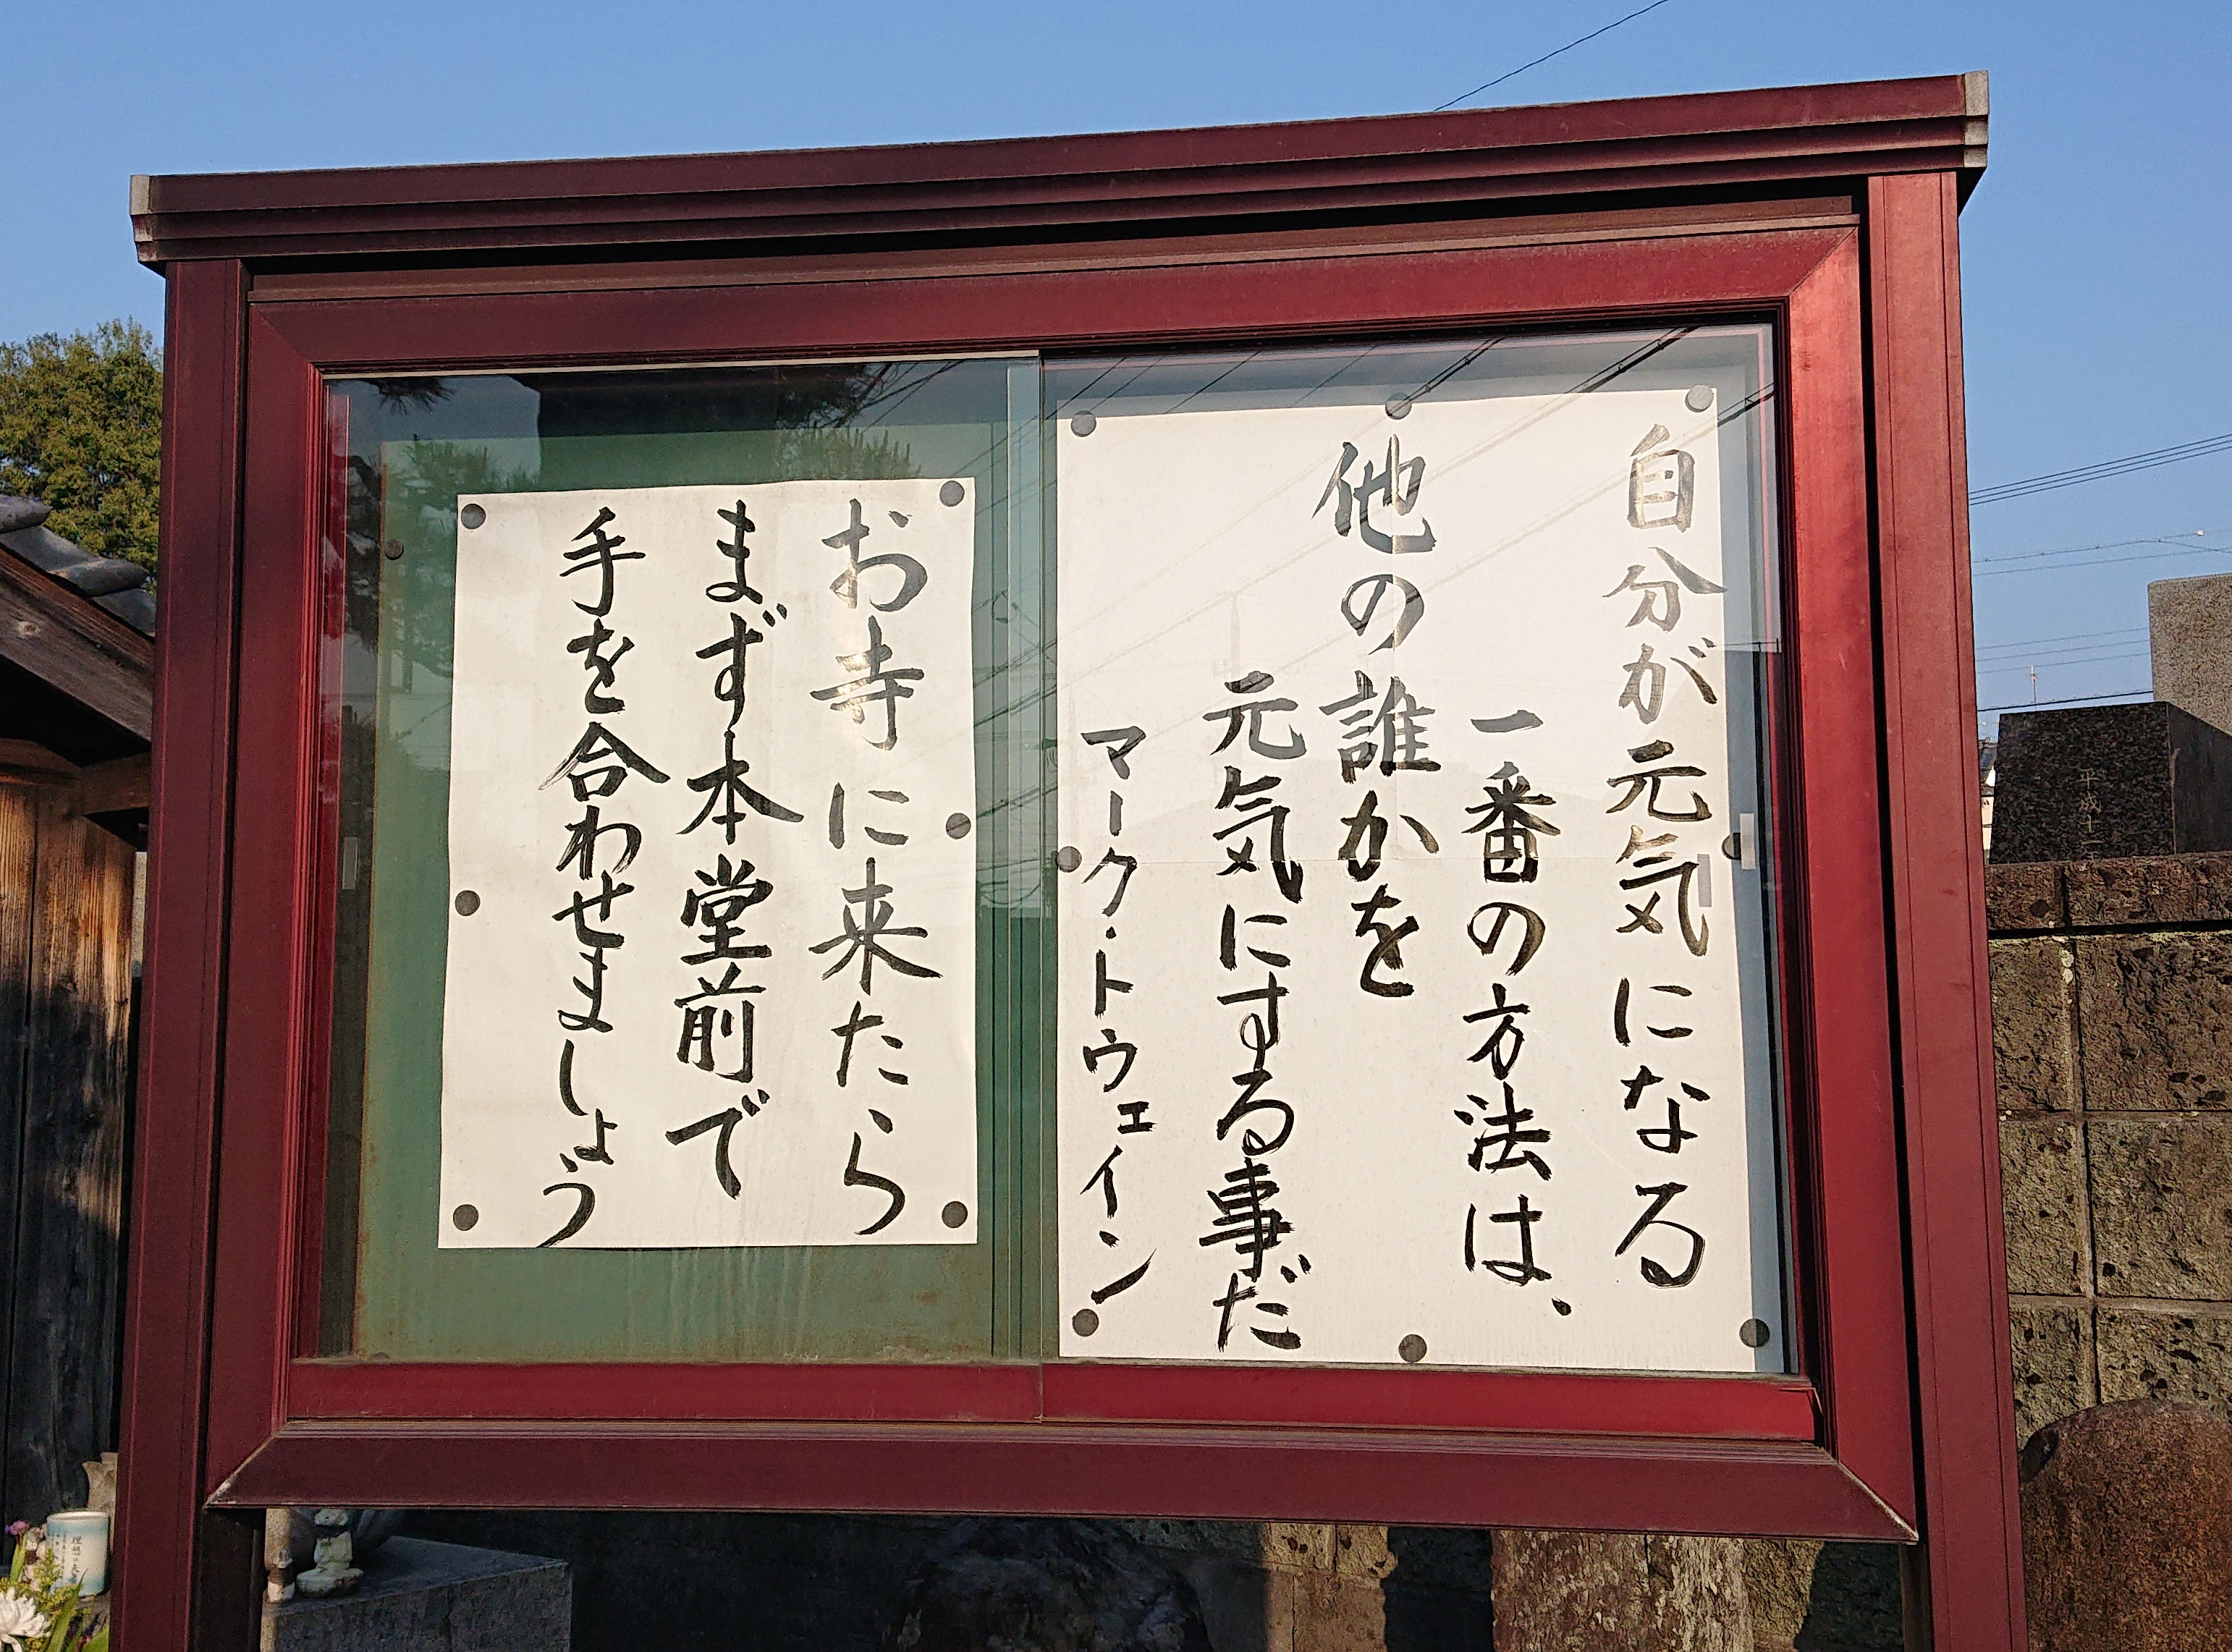 自分が元気になる
一番の方法は、
他の誰かを
元気にする事だ
マーク・トウェイン
お寺に来たら
まず本堂前で
手を合わせましょう